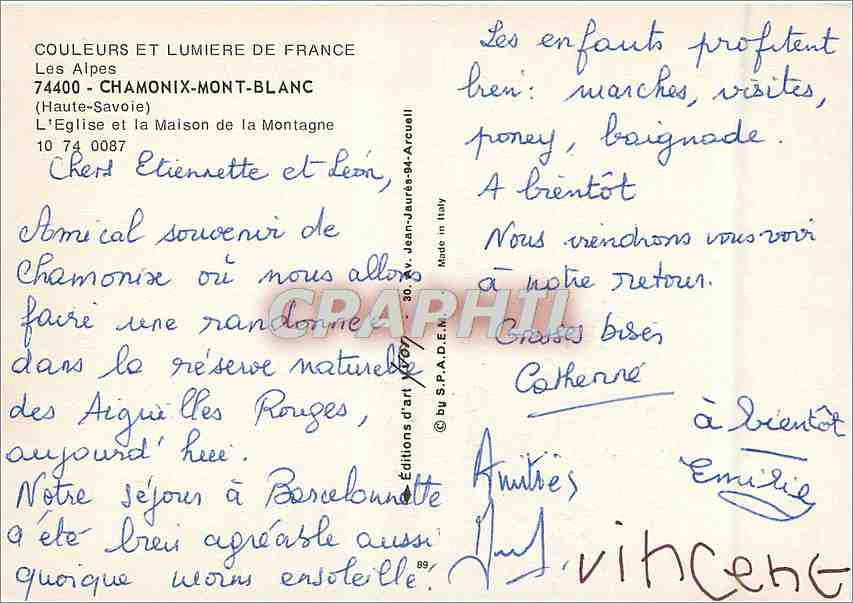 COULEURS ET LUMIERE DE FRANCE
Les Alpes
74400 - CHAMONIX-MONT-BLANC
(Haute-Savoie)
L'Eglise et la Maison de la Montagne
10 74 0087
Chers Etiennette et Léon,
Amical souvenir de
Chamonix où nous allons
faire une randonnée
dans la réserve naturelle
des Aiguilles Rouges,
aujourd'hui.
Notre séjour à Barcelonnette
a été bien agréable aussi
quoique moins ensoleillé.
Editions d'art Yvon - 30, Av. Jean-Jaurès-94-Arcueil
© by S.P.A.D.E.M. Made in Italy
89
CPAPHIL
Les enfants profitent
bien : marches, visites,
poney, baignade.
A bientôt
Nous viendrons vous voir
à notre retour.
Grosses bises
Catherine
à bientôt
Emilie
Amitiés
vincent